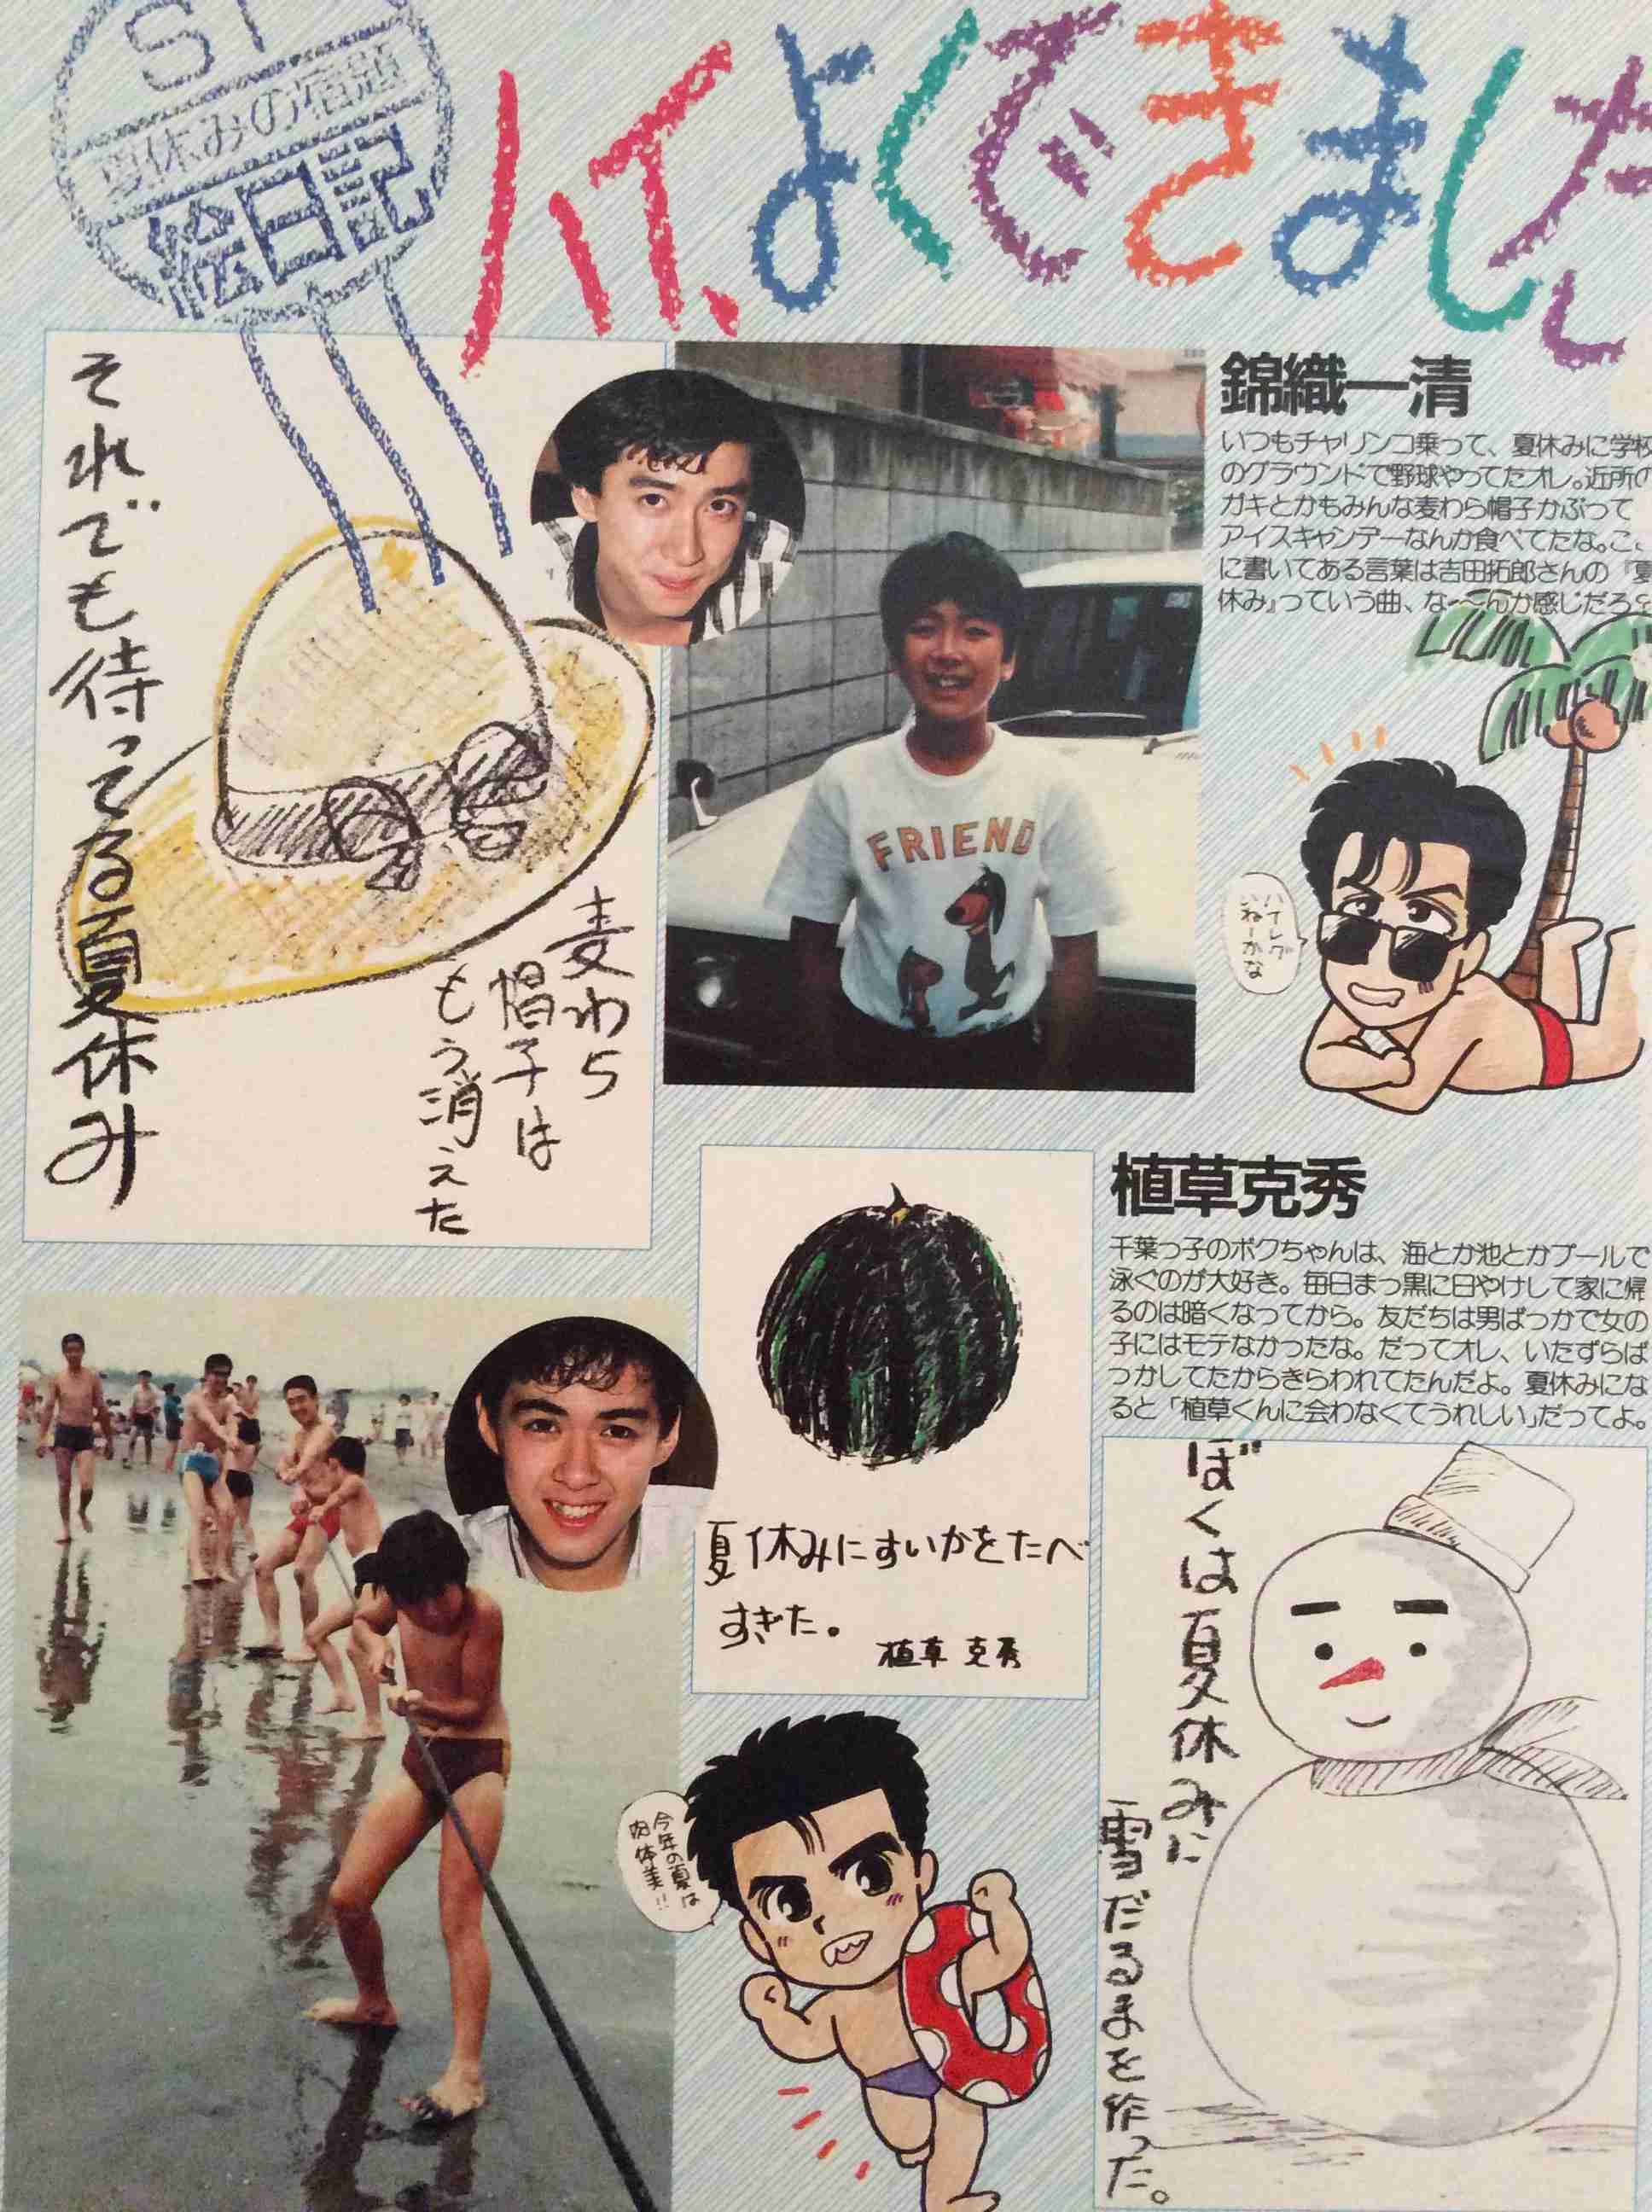 ハイ、よくできました
夏休みの宿題
絵日記
それでも待ってる夏休み
麦わら
帽子は
もう消えた
FRIEND
錦織一清
いつもチャリンコ乗って、夏休みに学校
のグラウンドで野球やってたオレ。近所の
ガキとかもみんな麦わら帽子かぶって
アイスキャンデーなんか食べてたな。こ、
に書いてある言葉は吉田拓郎さんの『夏
休み』っていう曲、な〜んか感じだろ
ハイレグ
いねーかな
植草克秀
千葉っ子のボクちゃんは、海とか池とかプールで
泳ぐのが大好き。毎日まっ黒に日やけして家に帰
るのは暗くなってから。友だちは男ばっかで女の
子にはモテなかったな。だってオレ、いたずらば
っかしてたからきらわれてたんだよ。夏休みにな
ると「植草くんに会わなくてうれしい」だってよ。
夏休みにすいかをたべ
すぎた。
植草克秀
今年の夏は
肉体美!!
ぼくは夏休みに
雪だるまを作った。